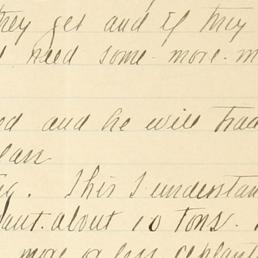 they get and if they
need some more m
and he will trad
. This I understan
about 10 tons.
more or less